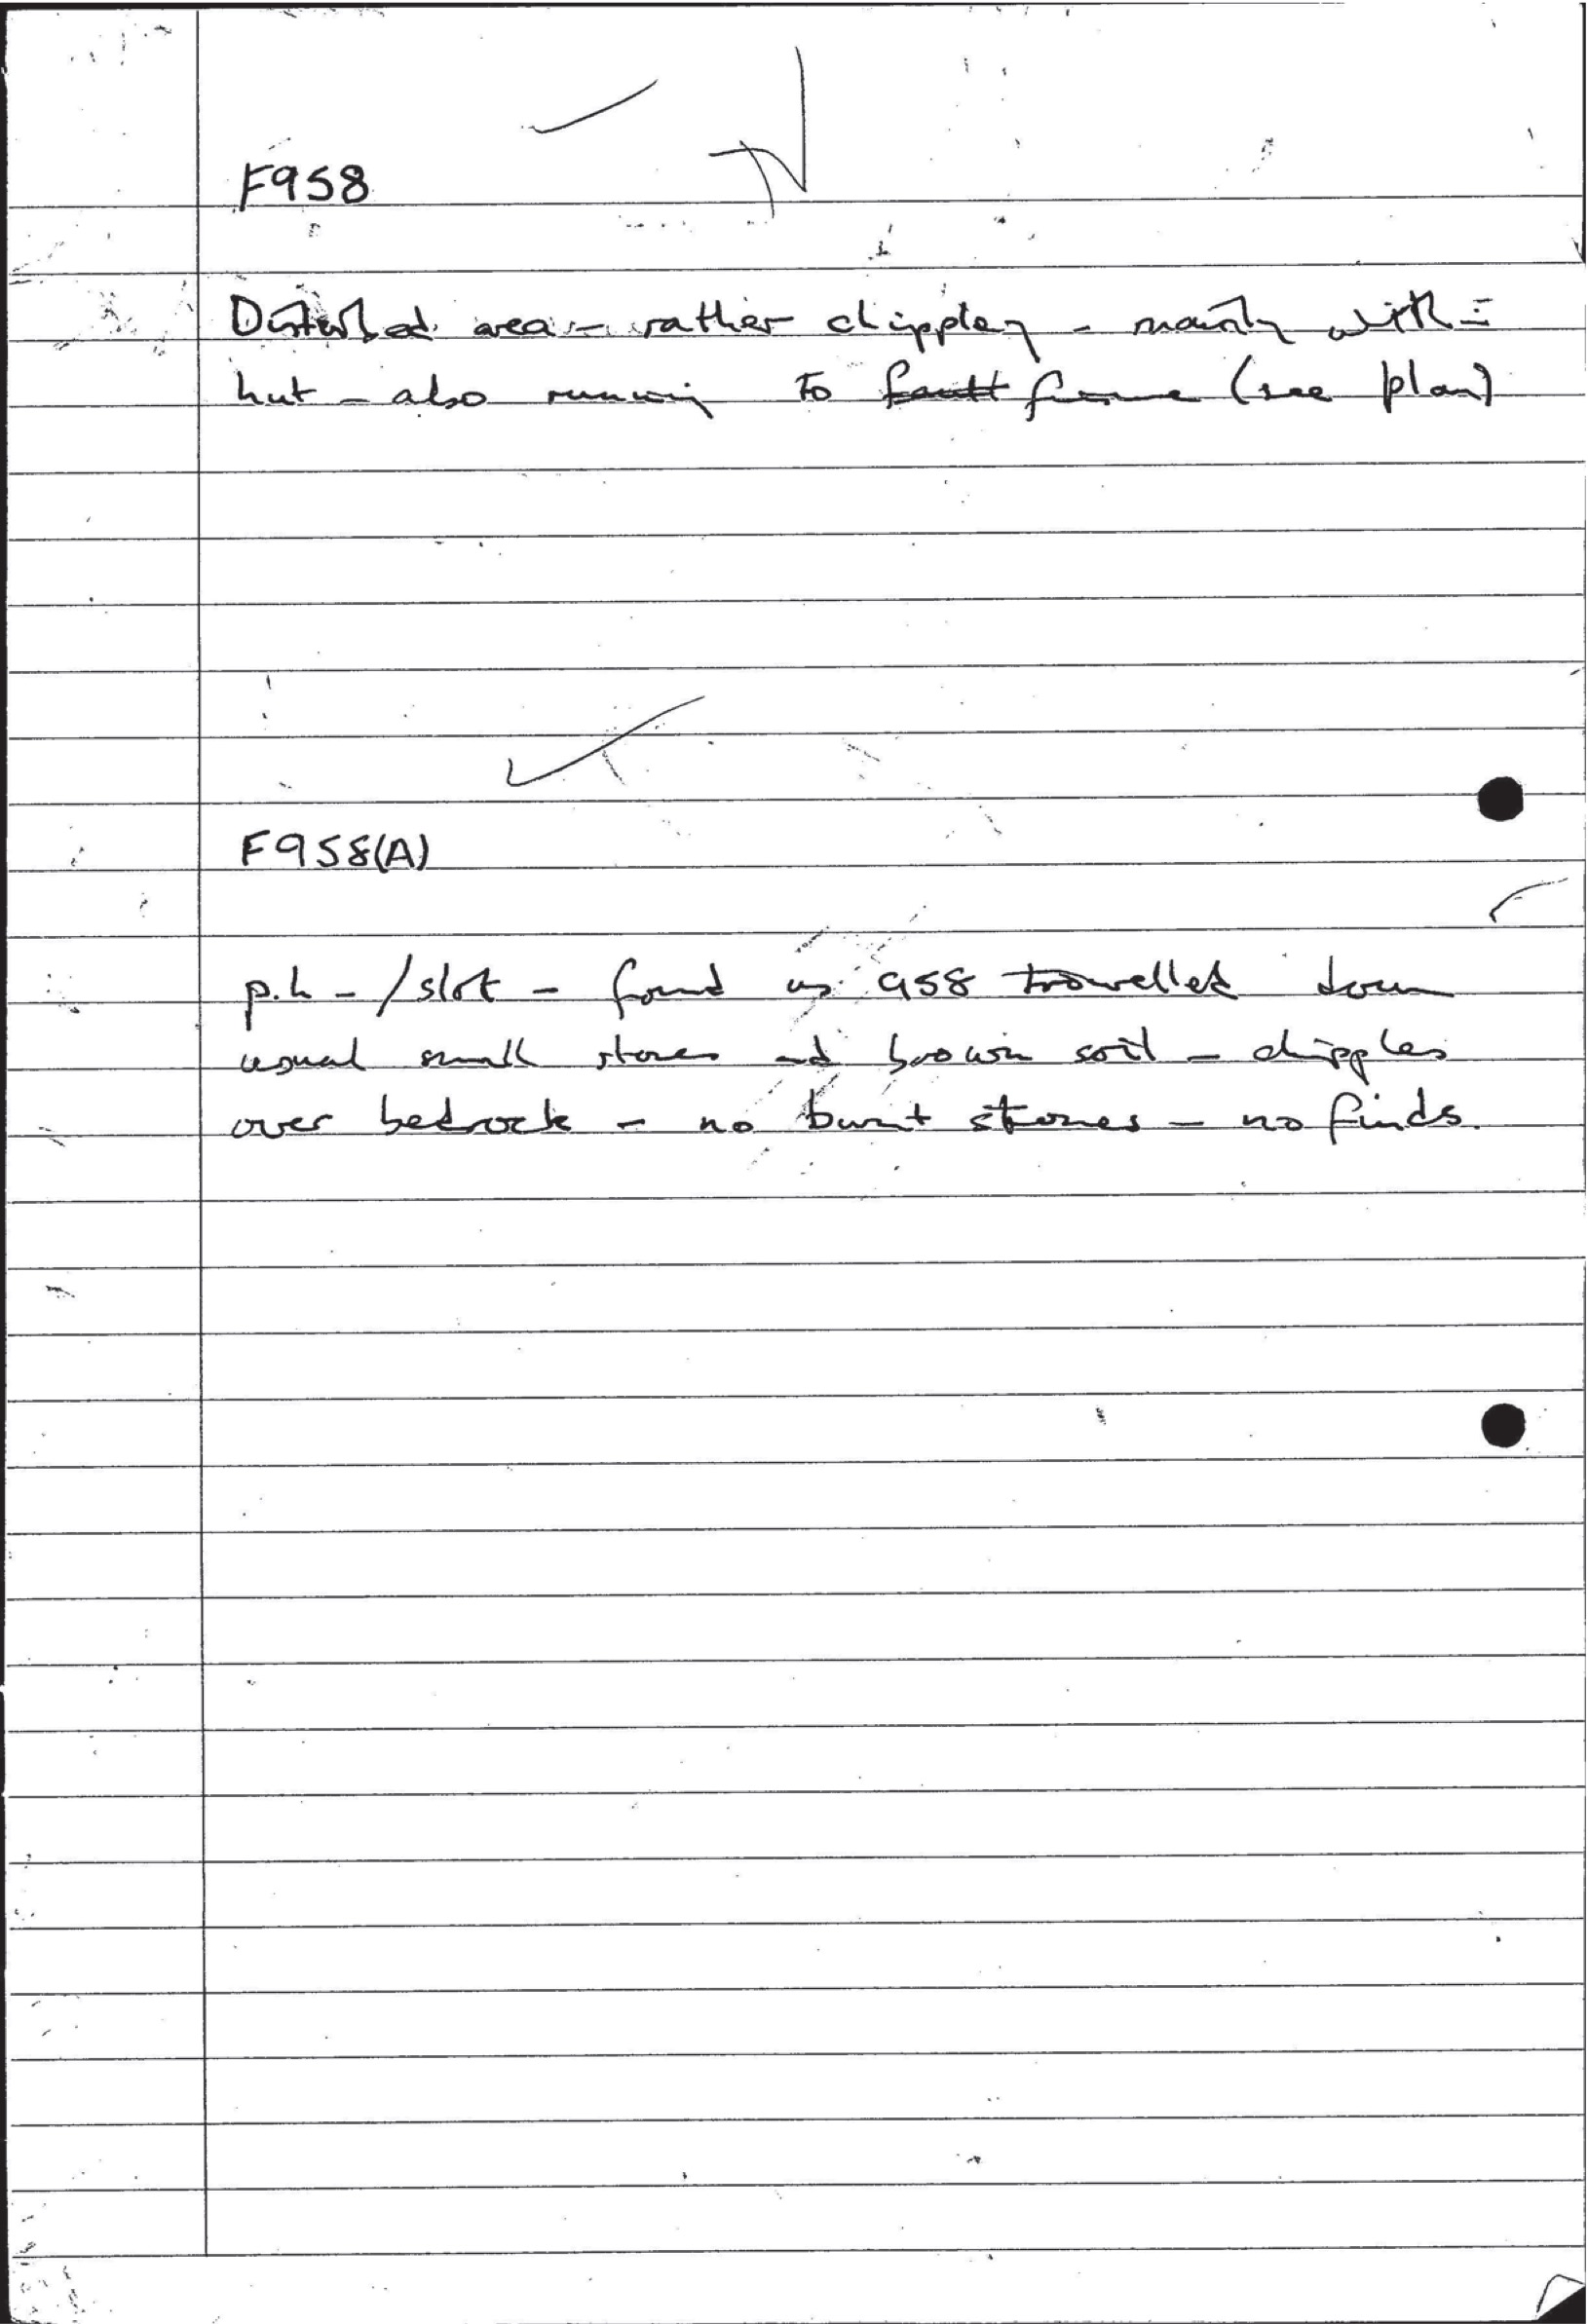 F958
Disturbed area - rather chippley - mainly within
hut - also running to fault fissure (see plan)
F958(A)
p.h - /slot - found as 958 trowelled down
usual small stones and brown soil - chipples
over bedrock - no burnt stones - no finds.